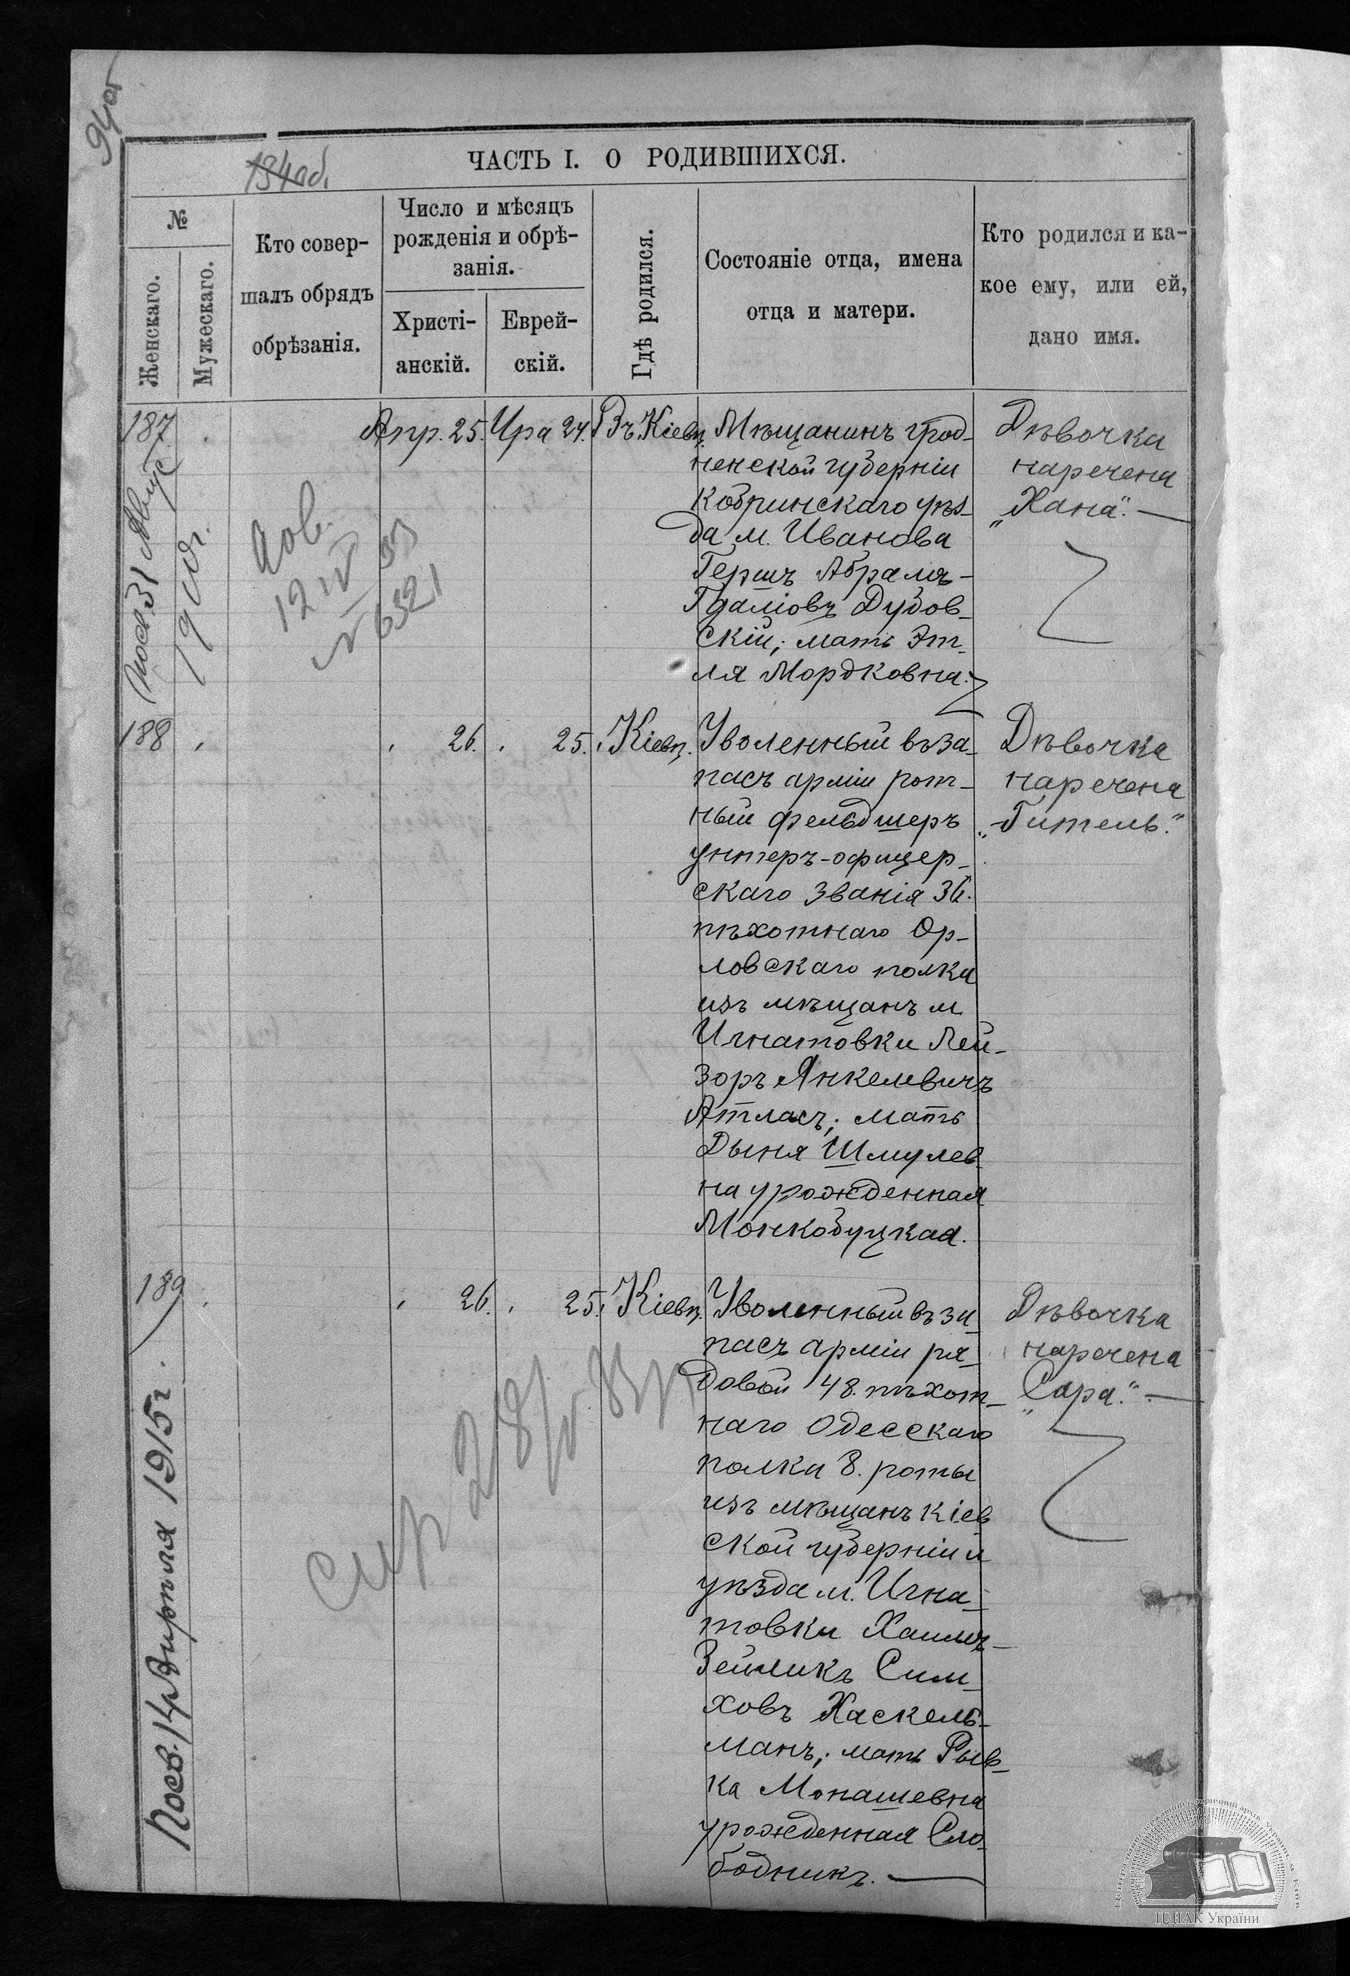 94об
134об.
ЧАСТЬ I. О РОДИВШИХСЯ.
№
Женскаго.
Мужескаго.
Кто совер-
шалъ обрядъ
обрѣзанія.
Число и мѣсяцъ
рожденія и обрѣ-
занія.
Христі-
анскій.
Еврей-
скій.
Гдѣ родился.
Состояніе отца, имена
отца и матери.
Кто родился и ка-
кое ему, или ей,
дано имя.
187.
Апр. 25.
Ира 24.
Въ Кіевѣ.
Мѣщанинъ грод-
ненской губерніи
Кобринскаго уѣз-
да м. Иванова
Гершъ Абрамъ-
Гдаліовъ Дубов-
скій; мать Эт-
ля Мордковна.
Дѣвочка
наречена
„Хана“.—
31 Август
19 г.
12 IV 33
№ 6321
188
26.
25.
Кіевѣ.
Уволенный въ за-
пасъ арміи рот-
ный фельдшеръ
унтеръ-офицер-
скаго званія 36.
пѣхотнаго Ор-
ловскаго полка
изъ мѣщанъ м.
Игнатовки Лей-
зоръ Янкелевичъ
Атласъ; мать
Дыня Шмулев-
на урожденная
Монкобуцкая.
Дѣвочка
наречена
„Гитель.“
189
26.
25.
Кіевѣ.
Уволенный въ за-
пасъ арміи ря-
довой 48. пѣхот-
наго Одесскаго
полка 8. роты
изъ мѣщанъ Кіев
ской губерніи и
уѣзда м. Игна-
товки Хаимъ-
Зейликъ Сим-
ховъ Хаскель-
манъ; мать Рыв-
ка Монашевна
урожденная Сло-
бодникъ.—
Дѣвочка
наречена
„Сара“.—
Посв. 14 Апрѣля 1915 г.
ЦДІАК України